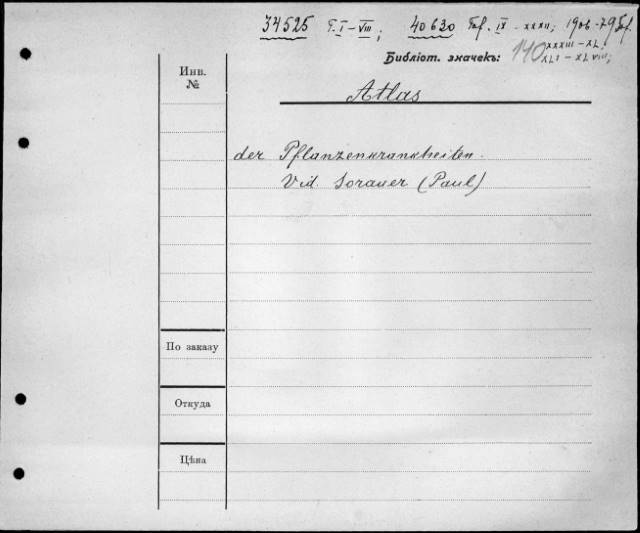 34525 T. I – VIII; 40630 Taf. IX – XXXII; 1906-79
XXXIII – XL;
Библіот. значекъ: 110 XLI – XLVIII;
Инв.
№
Atlas
der Pflanzenkrankheiten.
Vid. Sorauer (Paul)
По заказу
Откуда
Цѣна